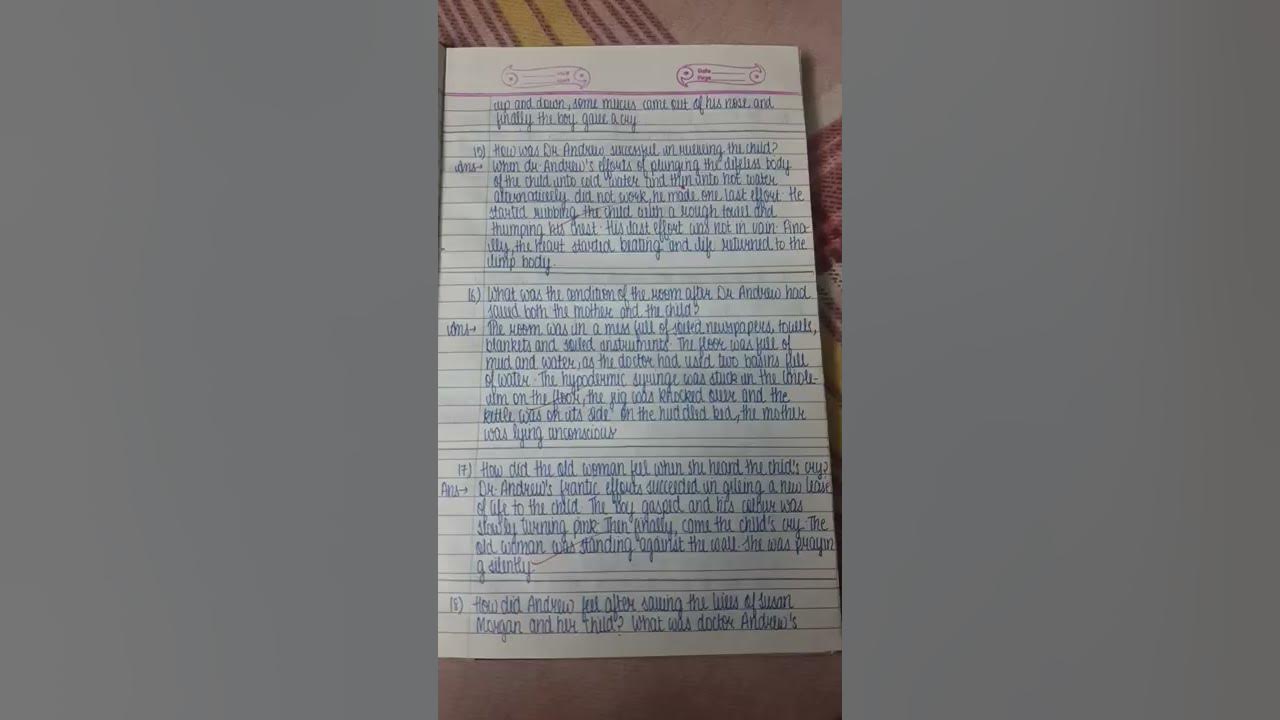 Date
Page
up and down, some mucus came out of his nose and
finally the boy gave a cry
15) How was Dr. Andrew successful in reviving the child?
Ans→ When dr. Andrew's efforts of plunging the lifeless body
of the child into cold water and then into hot water
alternatively did not work, he made one last effort. He
started rubbing the child with a rough towel and
thumping his chest. His last effort was not in vain. Fina-
lly, the heart started beating and life returned to the
limp body.
16) What was the condition of the room after Dr Andrew had
saved both the mother and the child?
Ans→ The room was in a mess full of soiled newspapers, towels,
blankets and soiled instruments. The floor was full of
mud and water, as the doctor had used two basins full
of water. The hypodermic syringe was stuck in the linole-
um on the floor, the jug was knocked over and the
kettle was on its side on the huddled bed, the mother
was lying unconscious
17) How did the old woman feel when she heard the child's cry?
Ans→ Dr. Andrew's frantic efforts succeeded in giving a new lease
of life to the child. The boy gasped and his colour was
slowly turning pink. Then finally, came the child's cry. The
old woman was standing against the wall. She was prayin
g silently.
18) How did Andrew feel after saving the lives of Susan
Morgan and her child? What was doctor Andrew's